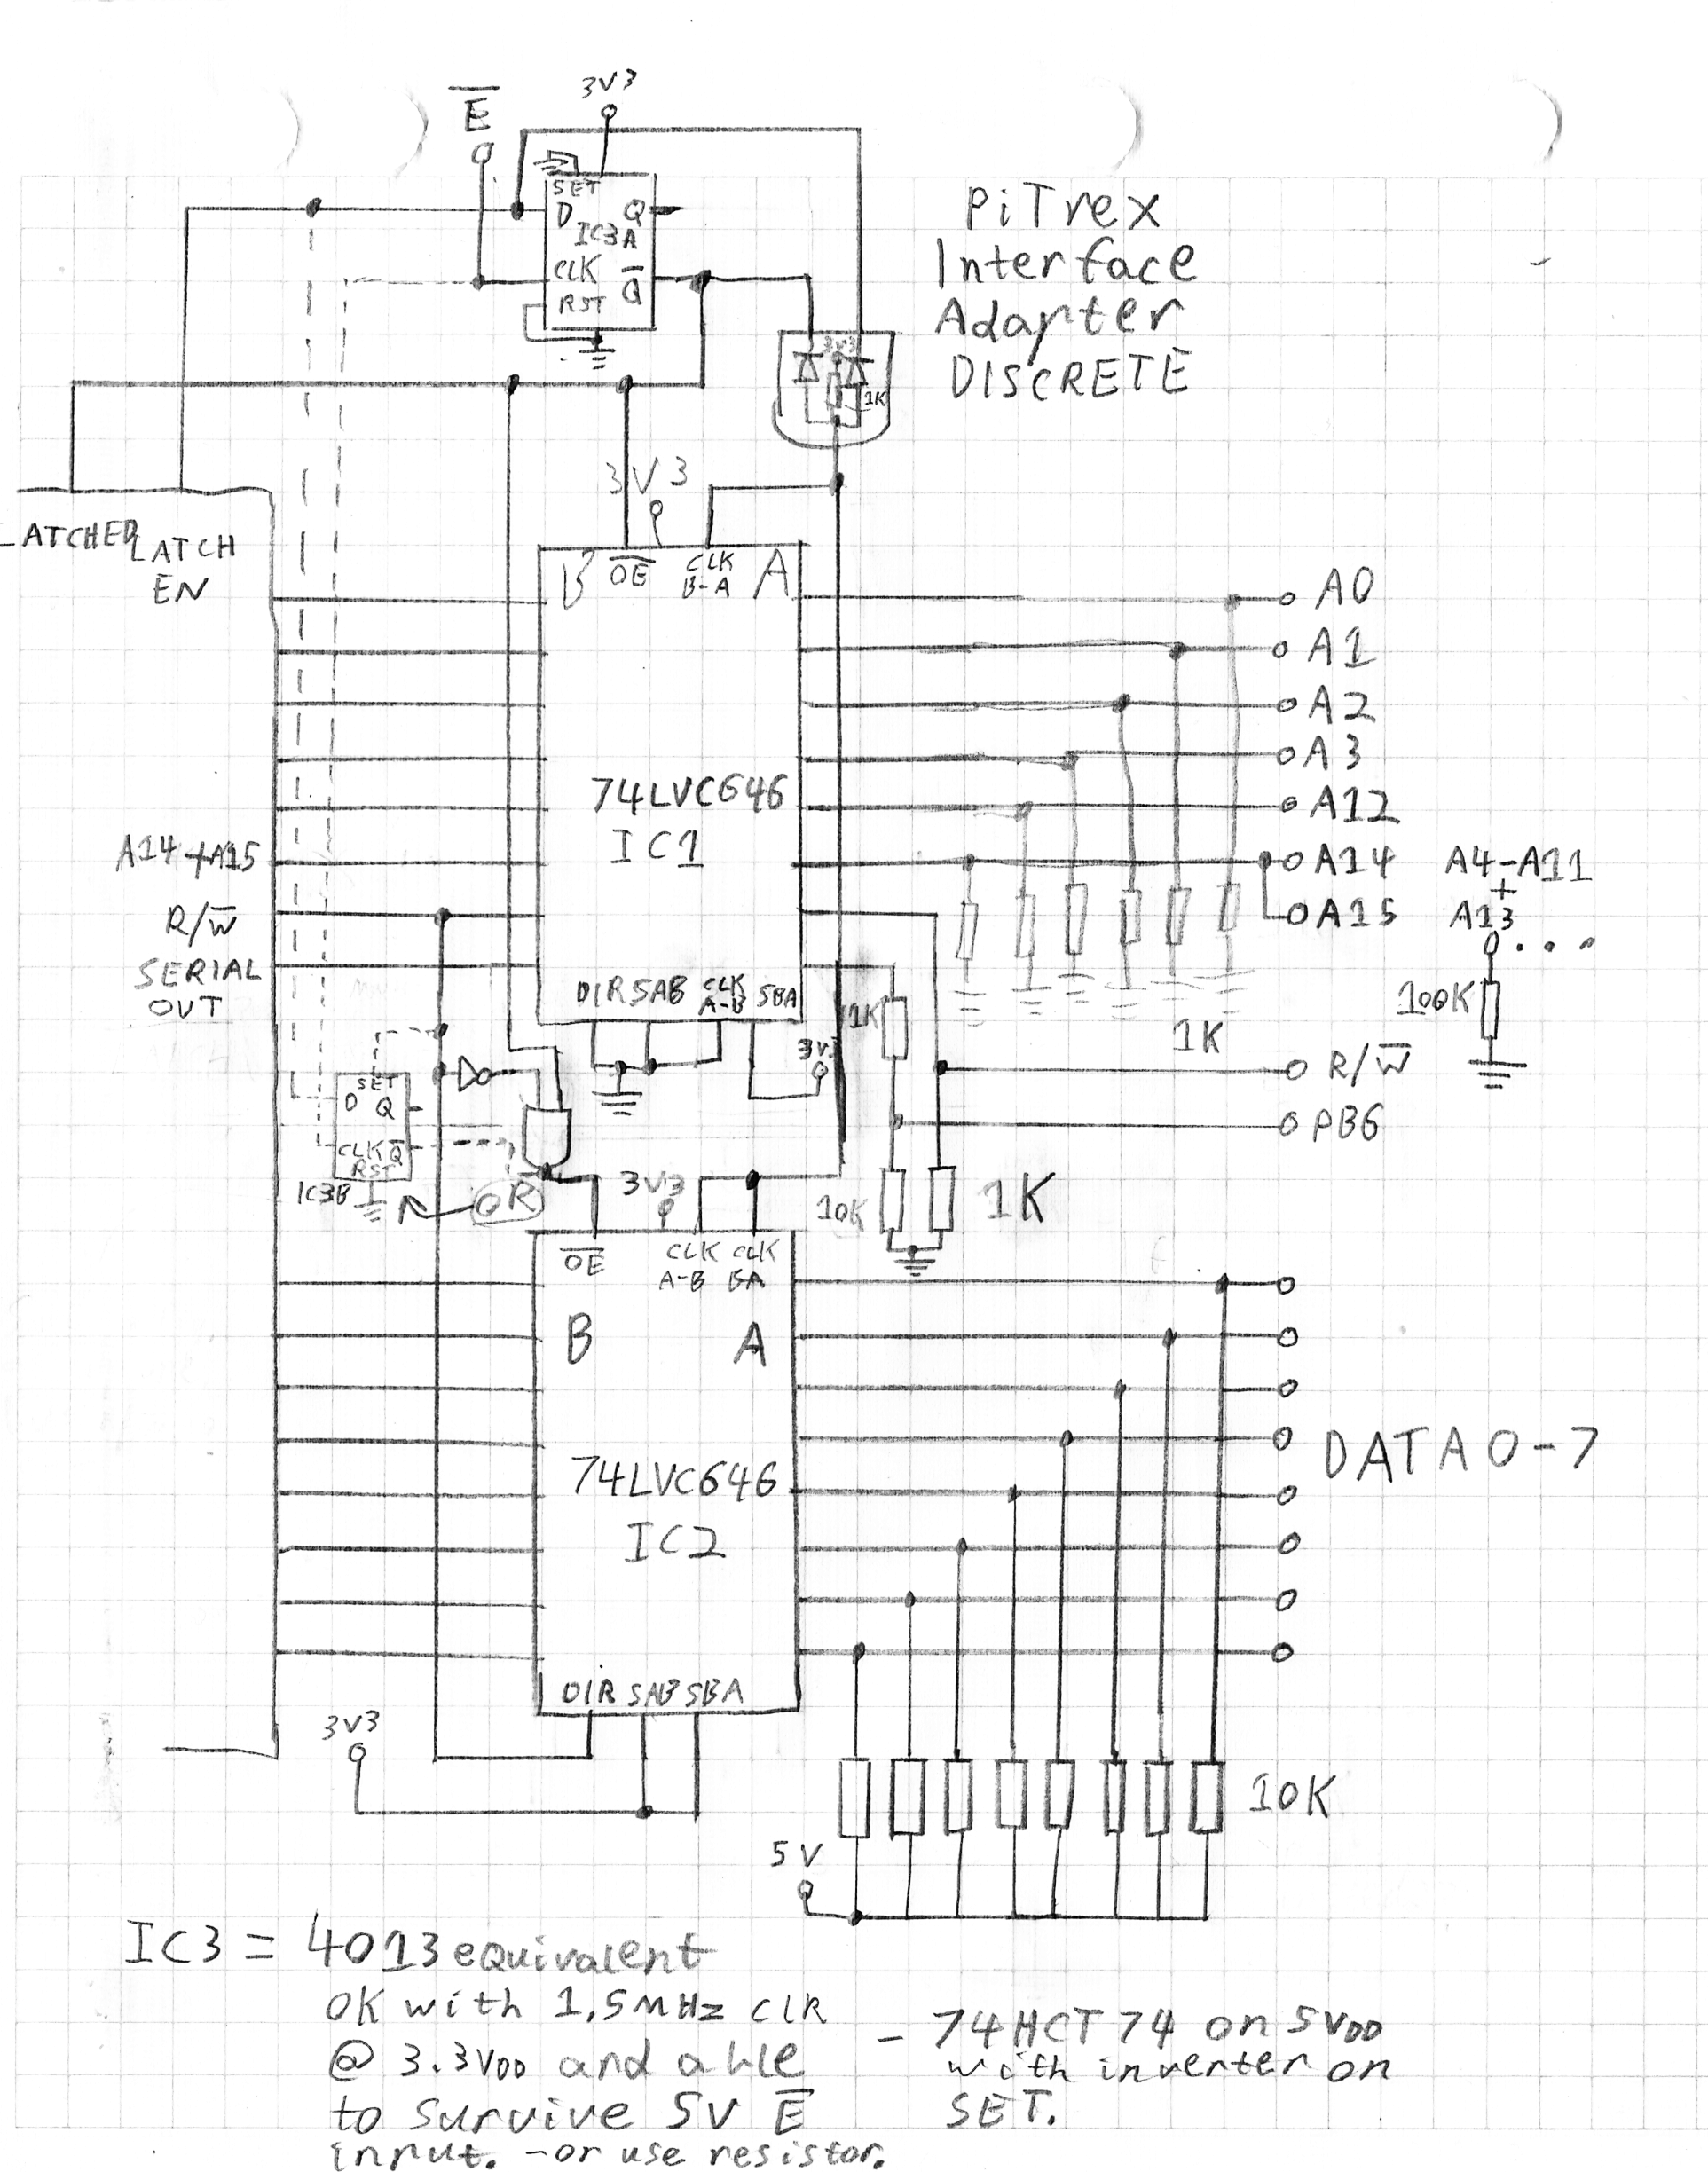 E̅
3V3
SET
D Q
IC3A
CLK Q̅
RST
PiTrex
Interface
Adapter
DISCRETE
3V3
1K
3V3
LATCHED
LATCH
EN
B O̅E̅ CLK B-A A
A0
A1
A2
A3
74LVC646
IC1
A12
A14+A15
A14
A4-A11
+
A13
R/W̅
A15
SERIAL
OUT
DIR SAB CLK A-B SBA
1K
100K
1K
3V3
R/W̅
SET
D Q
CLK Q̅
RST
IC3B
PB6
OR
3V3
10K
1K
O̅E̅ CLK A-B CLK BA
B A
DATA 0-7
74LVC646
IC2
DIR SAB SBA
3V3
10K
5V
IC3 = 4013 equivalent
OK with 1,5MHz CLR
@ 3.3VDD and able
to survive 5V E̅
input. -or use resistor.
- 74HCT74 on 5VDD
with inverter on
SET.